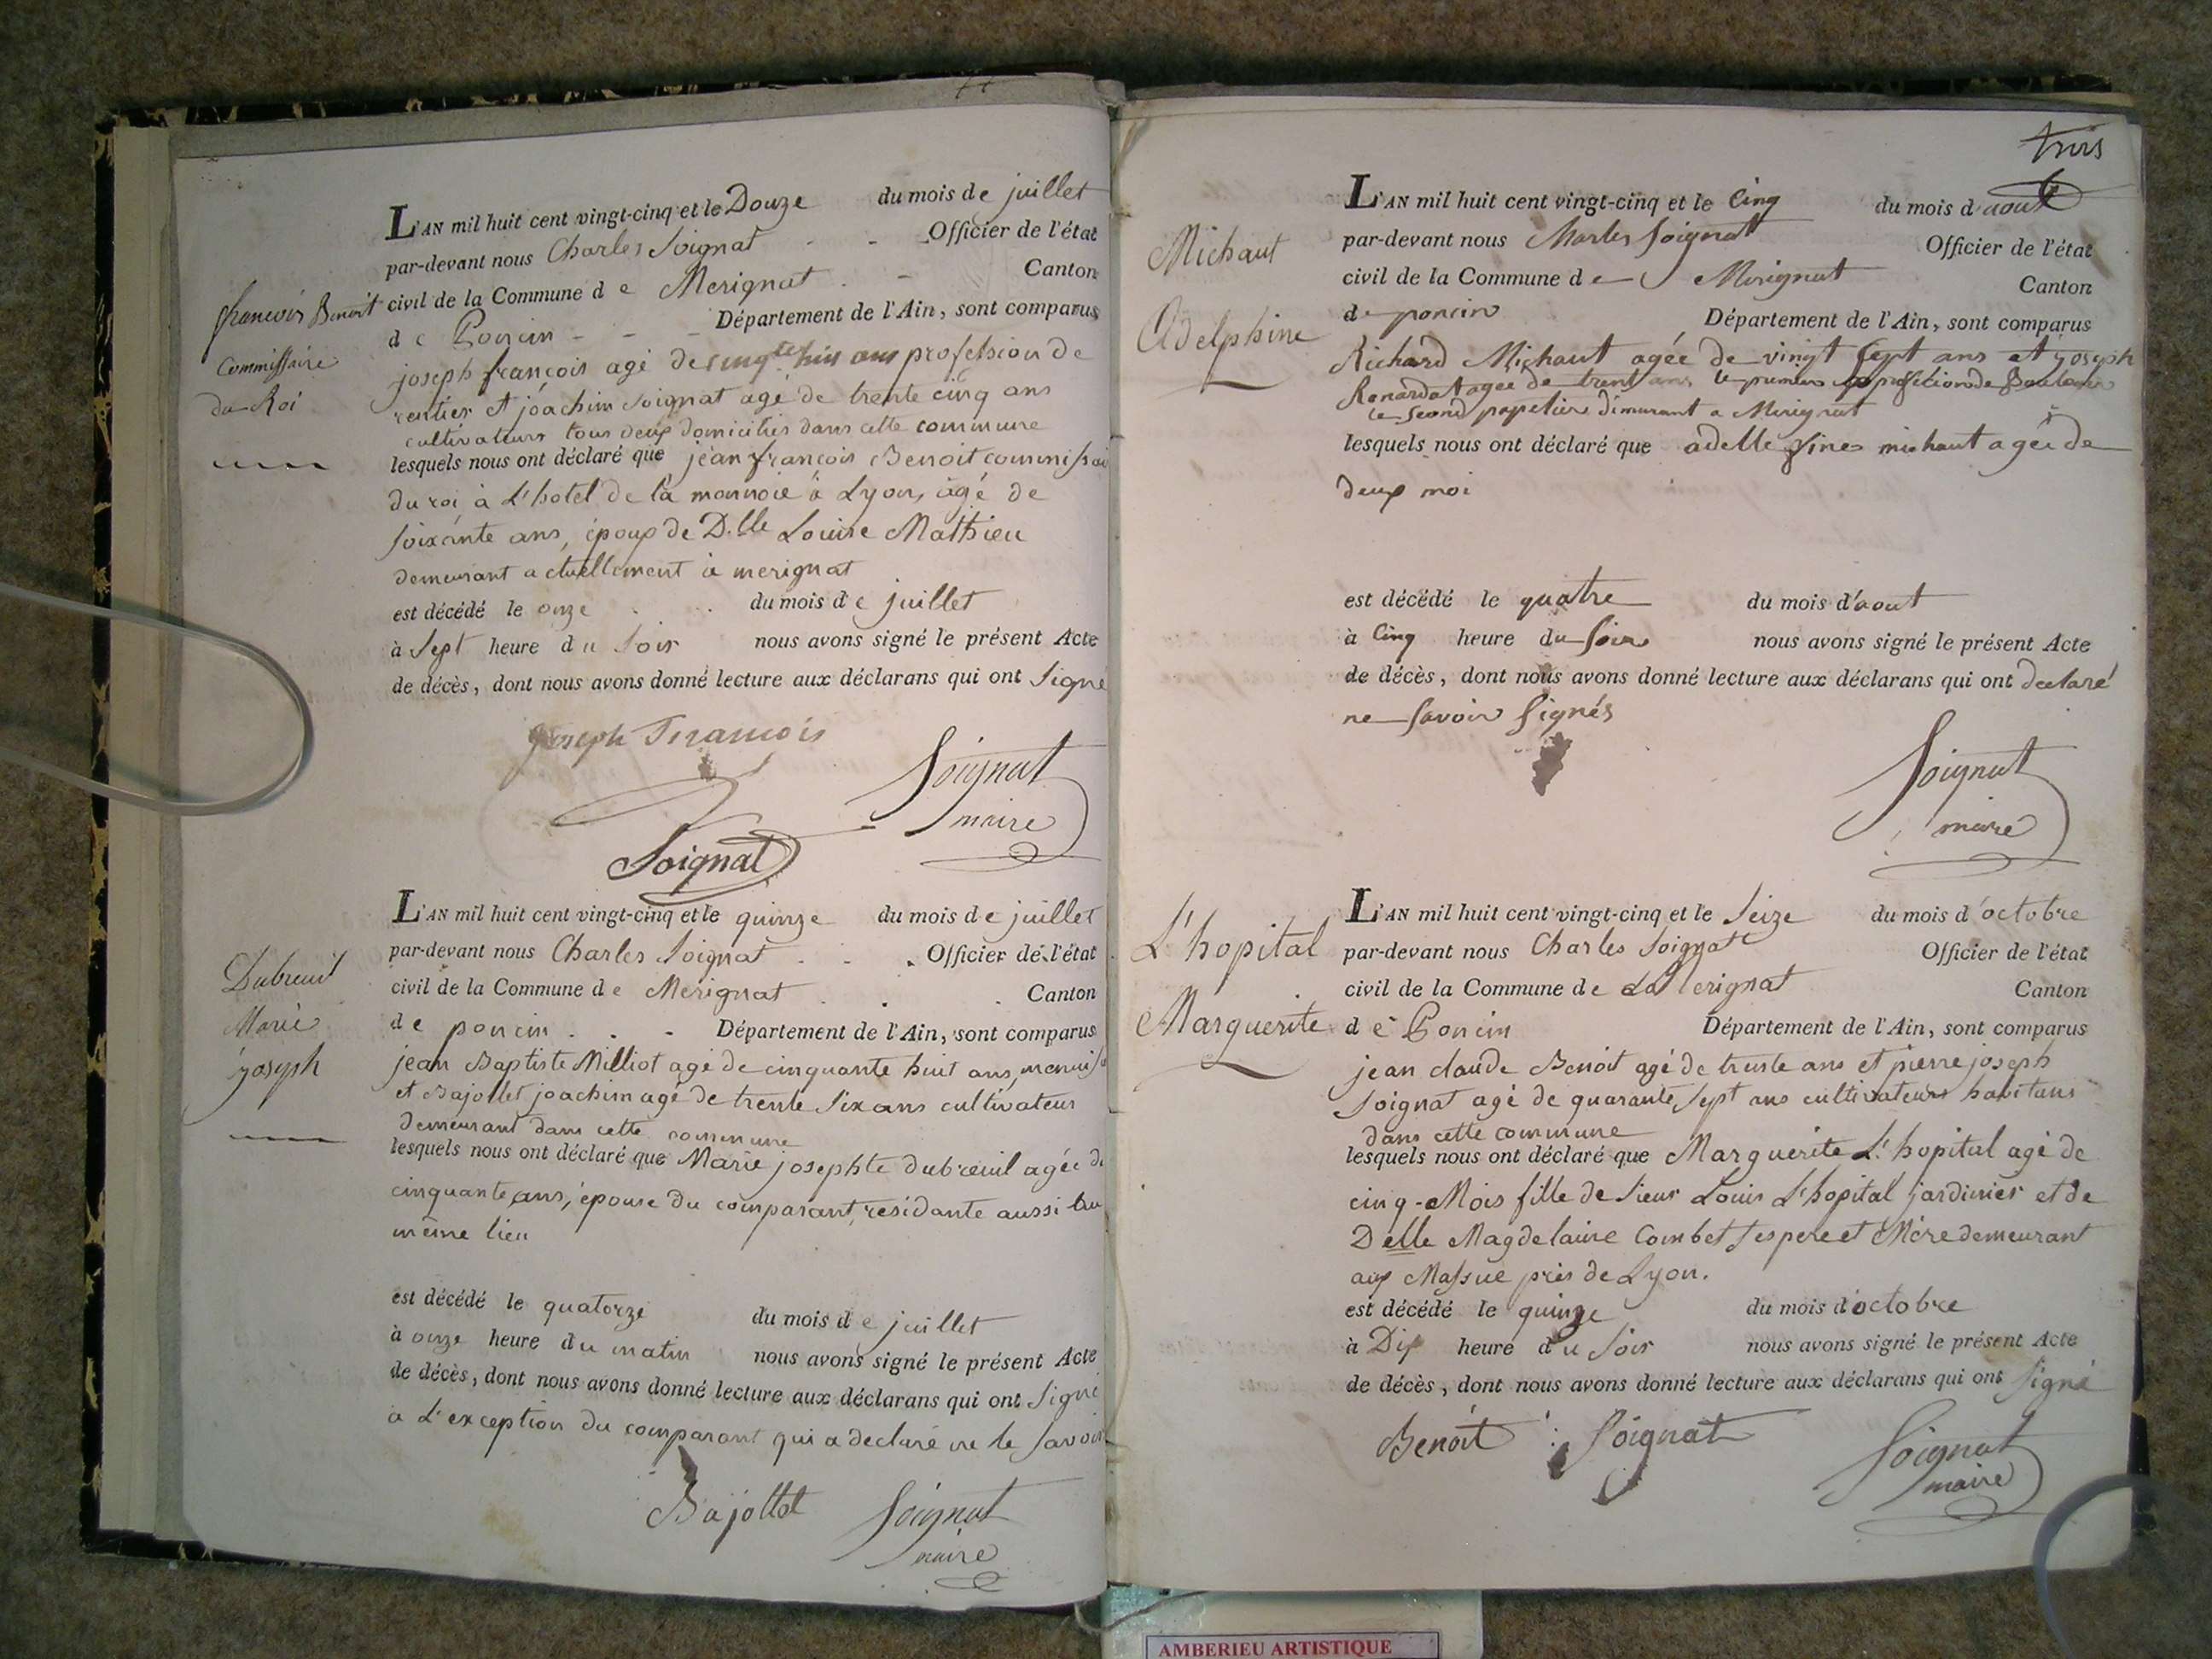 L'AN mil huit cent vingt-cinq et le Douze du mois de juillet
par-devant nous Charles Soignat Officier de l'état
civil de la Commune de Merignat Canton
de Poncin Département de l'Ain, sont comparus
françois Benoit
Commissaire
du Roi
joseph françois agé de ans profession de
rentier et joachim Soignat agé de trente cinq ans
cultivateurs tous deux domiciliés dans cette commune
lesquels nous ont déclaré que jean françois Benoit commissai
du roi à L'hotel de la monnoie à Lyon, âgé de
soixante ans, époux de D.lle Louise Mathieu
demeurant actuellement à merignat
est décédé le onze du mois de juillet
à Sept heure du Soir nous avons signé le présent Acte
de décès, dont nous avons donné lecture aux déclarans qui ont Signé
Joseph François
Soignat
maire
Soignat
L'AN mil huit cent vingt-cinq et le quinze du mois de juillet
par-devant nous Charles Soignat Officier de l'état
civil de la Commune de Merignat Canton
de poncin Département de l'Ain, sont comparus
Dubreuil
Marie
joseph
jean Baptiste Milliot agé de cinquante huit ans,
et Bajollet joachim agé de trente six ans cultivateur
demeurant dans cette commune
lesquels nous ont déclaré que Marie josephte dubreuil agée de
cinquante ans, épouse du comparant, résidante aussi au
même lieu
est décédé le quatorze du mois de juillet
à onze heure du matin nous avons signé le présent Acte
de décès, dont nous avons donné lecture aux déclarans qui ont Signé
a L'exception du comparant qui a declaré ne le savoir
Bajollet Soignat
maire
trois
L'AN mil huit cent vingt-cinq et le Cinq du mois d'aout
par-devant nous Charles Soignat Officier de l'état
civil de la Commune de Merignat Canton
de poncin Département de l'Ain, sont comparus
Michaut
Adelphine
Richard Michaut agée de vingt sept ans et joseph
Renardat agée de trent ans le premier profession de
le second papetier dimurant a Merignat
lesquels nous ont déclaré que adelle fine michaut agée de
deux moi
est décédé le quatre du mois d'aout
à Cinq heure du Soir nous avons signé le présent Acte
de décès, dont nous avons donné lecture aux déclarans qui ont declaré
ne savoir signés
Soignat
maire
L'AN mil huit cent vingt-cinq et le Seize du mois d'octobre
par-devant nous Charles Soignat Officier de l'état
civil de la Commune de Merignat Canton
de Poncin Département de l'Ain, sont comparus
L'hopital
Marguerite
jean claude Benoit agé de trente ans et pierre joseph
Soignat agé de quarante sept ans cultivateurs habitans
dans cette commune
lesquels nous ont déclaré que Marguerite L'hopital agé de
cinq Mois fille de Sieur Louis L'hopital jardinier et de
Delle Magdelaine Combet ses pere et Mère demeurant
aux Massue près de Lyon.
est décédé le quinze du mois d'octobre
à Dix heure du Soir nous avons signé le présent Acte
de décès, dont nous avons donné lecture aux déclarans qui ont Signé
Benoit Soignat Soignat
maire
AMBERIEU ARTISTIQUE